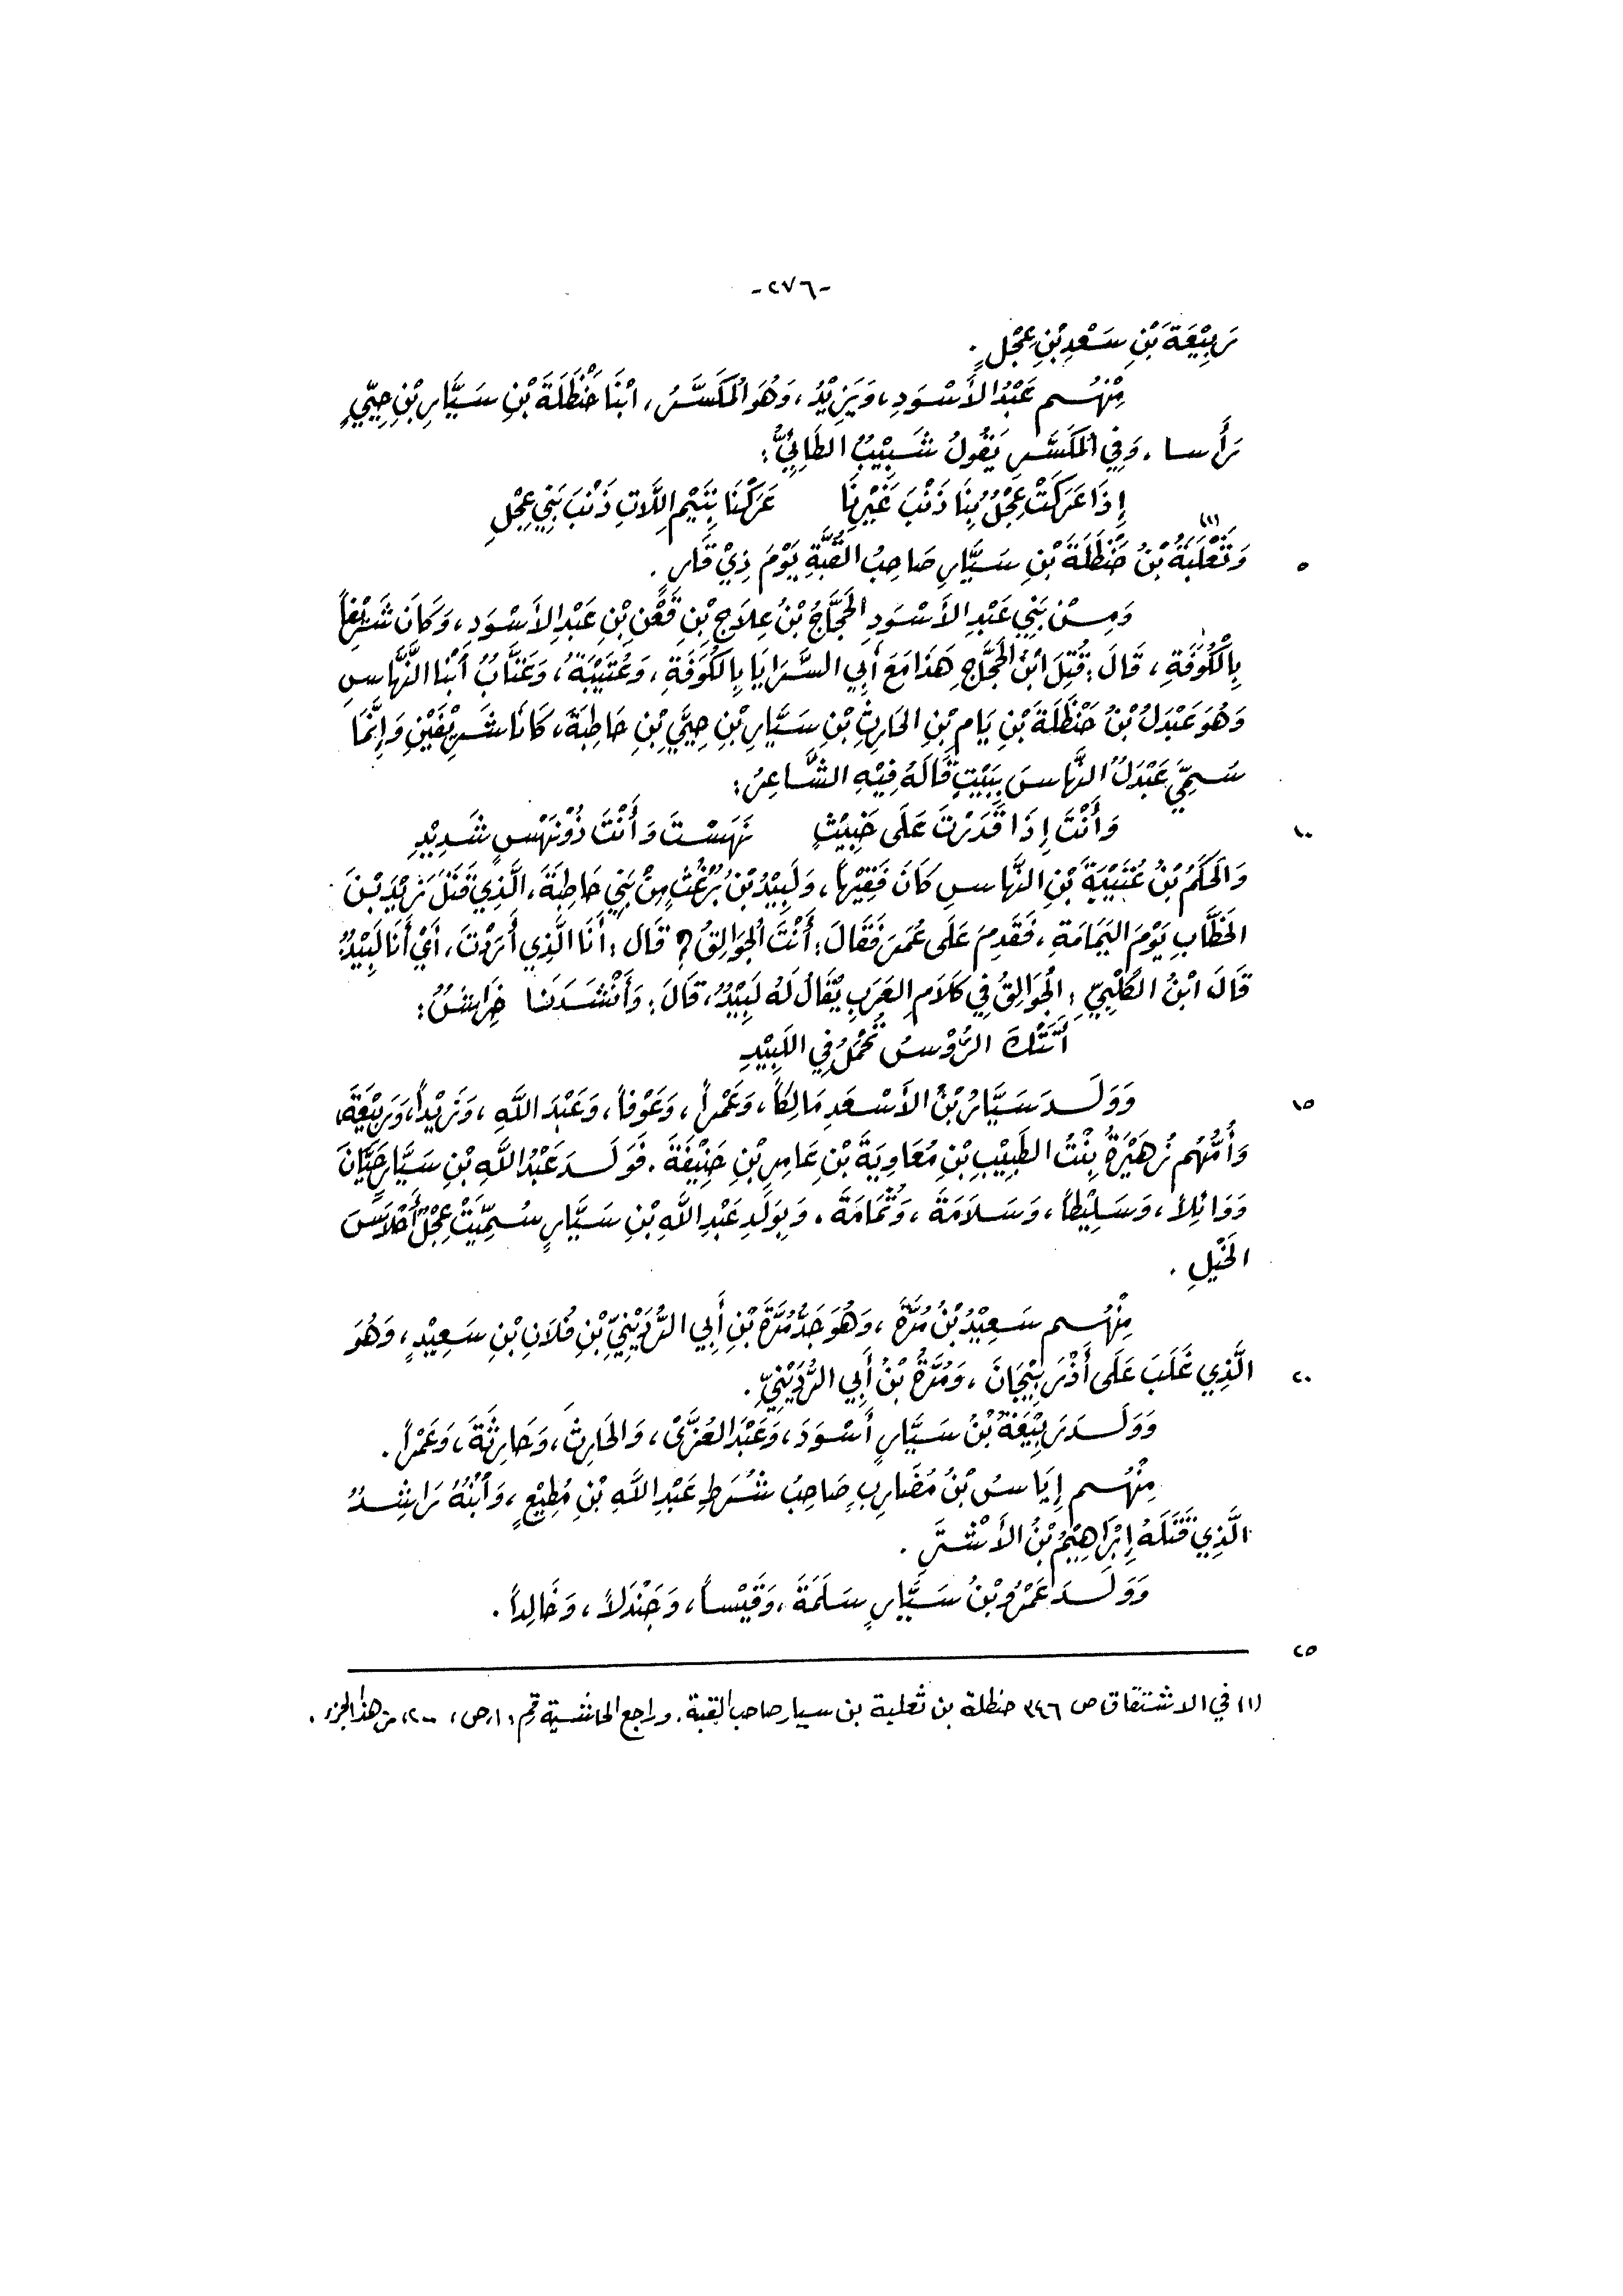 -٢٧٦-
رَبِيْعَةَ بْنِ سَعْدِ بْنِ عِجْلٍ .
مِنْهُم عَبْدُ الأَسْوَدِ، وَيَزِيْدُ، وَهُوَ المُكَسَّرُ، ابْنَا حَنْظَلَةَ بْنِ سَيَّارِ بْنِ حِيَيٍّ
رَأَسا، وَفِي المُكَسَّرِ يَقُولُ شَبِيْبٌ الطَائِيُّ:
إِذَا عَرَكَتْ عِجْلٌ بِنَا ذَنْبَ غَيْرِنَا عَرَكْنَا بِتَيْمِ اللَّاتِ ذَنْبَ بَنِي عِجْلِ
٥ وَثَعْلَبَةُ(١) بْنُ حَنْظَلَةَ بْنِ سَيَّارٍ صَاحِبُ القُبَّةِ يَوْمَ ذِيْ قَارٍ .
وَمِنْ بَنِي عَبْدِ الأَسْوَدِ الحَجَّاجُ بْنُ عِلَاجِ بْنِ قَعْنِ بْنِ عَبْدِ الأَسْوَدِ، وَكَانَ شَرِيْفاً
بِالْكُوفَةِ، قَالَ: قُتِلَ ابْنُ الحَجَّاجِ هَذَا مَعَ أَبِي السَّرَايَا بِالكُوفَةِ، وَعُتَيْبَةُ، وَعَتَّابٌ ابْنا النَّهَّاسِ
وَهُوَ عَبْدَلُ بْنُ حَنْظَلَةَ بْنِ يَامِ بْنِ الحَارِثِ بْنِ سَيَّارِ بْنِ حِيَيِّ بْنِ حَاطِبَةَ، كَانَا شَرِيْفَيْنِ وَإِنَّمَا
سُمِّيَ عَبْدَلٌ النَّهَّاسَ بِبَيْتٍ قَالَهُ فِيْهِ الشَّاعِرُ:
١٠ وَأَنْتَ إِذَا قَدَرْتَ عَلَى خَبِيْثٍ نَهَسْتَ وَأَنْتَ ذُوْ نَهْسٍ شَدِيْدِ
وَالحَكَمُ بْنُ عُتَيْبَةَ بْنِ النَّهَّاسِ كَانَ فَقِيْهاً، وَلَبِيْدُ بْنُ بُرْغُثٍ مِنْ بَنِي حَاطِبَةَ، الَّذِي قَتَلَ زَيْدَ بْنَ
الخَطَّابِ يَوْمَ اليَمَامَةِ، فَقَدِمَ عَلَى عُمَرَ فَقَالَ: أَنْتَ الجُوَالِقُ؟ قَالَ: أَنَا الَّذِي أَرَدْتَ، أَيْ أَنَا لَبِيْدٌ،
قَالَ ابْنُ الكَلْبِيِّ: الجُوَالِقُ فِي كَلَامِ العَرَبِ يُقَالُ لَهُ لَبِيْدٌ، قَالَ: وَأَنْشَدَنَا خِرَاشٌ:
أَتَتْكَ الرُّؤْسُ تُحْمَلُ فِي اللَبِيْدِ
١٥ وَوَلَدَ سَيَّارُ بْنُ الأَسْعَدِ مَالِكاً، وَعَمْراً، وَعَوْفاً، وَعَبْدَ اللَّهِ، وَزَيْداً، وَرَبِيْعَةَ،
وَأُمُّهُم زُهَيْرَةُ بِنْتُ الطَبِيْبِ بْنِ مُعَاوِيَةَ بْنِ عَامِرِ بْنِ حَنِيْفَةَ . فَوَلَدَ عَبْدُ اللَّهِ بْنِ سَيَّارٍ حَيَّانَ
وَوَائِلاً، وَسَلِيْطاً، وَسَلَامَةَ، وَثُمَامَةَ . وَبِوَلَدِ عَبْدِ اللَّهِ بْنِ سَيَّارٍ سُمِّيَتْ عِجْلٌ أَحْلَاسَ
الخَيْلِ .
مِنْهُم سَعِيْدُ بْنُ مُرَّةَ، وَهُوَ جَدُّ مُرَّةَ بْنِ أَبِي الرُّدَيْنِيِّ بْنِ فُلَانِ بْنِ سَعِيْدٍ، وَهُوَ
٢٠ الَّذِي غَلَبَ عَلَى أَذْرَبِيْجَانَ، وَمُرَّةُ بْنُ أَبِي الرُّدَيْنِيِّ .
وَوَلَدَ رَبِيْعَةُ بْنُ سَيَّارٍ أَسْوَدَ، وَعَبْدَ العُزَّىْ، وَالحَارِثَ، وَحَارِثَةَ، وَعَمْراً .
مِنْهُم إِيَاسُ بْنُ مُضَارِبٍ صَاحِبُ شُرَطِ عَبْدِ اللَّهِ بْنِ مُطِيْعٍ، وَابْنُهُ رَاشِدٌ
الَّذِي قَتَلَهُ إِبْرَاهِيْمُ بْنُ الأَشْتَرِ .
وَوَلَدَ عَمْرُو بْنُ سَيَّارٍ سَلَمَةَ، وَقَيْساً، وَجَنْدَلاً، وَخَالِداً .
٢٥
(١) في الاشتقاق ص ٣٤٦ حنظلة بن ثعلبة بن سيار صاحب القبة. وراجع الحاشية رقم، ١، ص، ٢٠٠، من هذا الجزء .